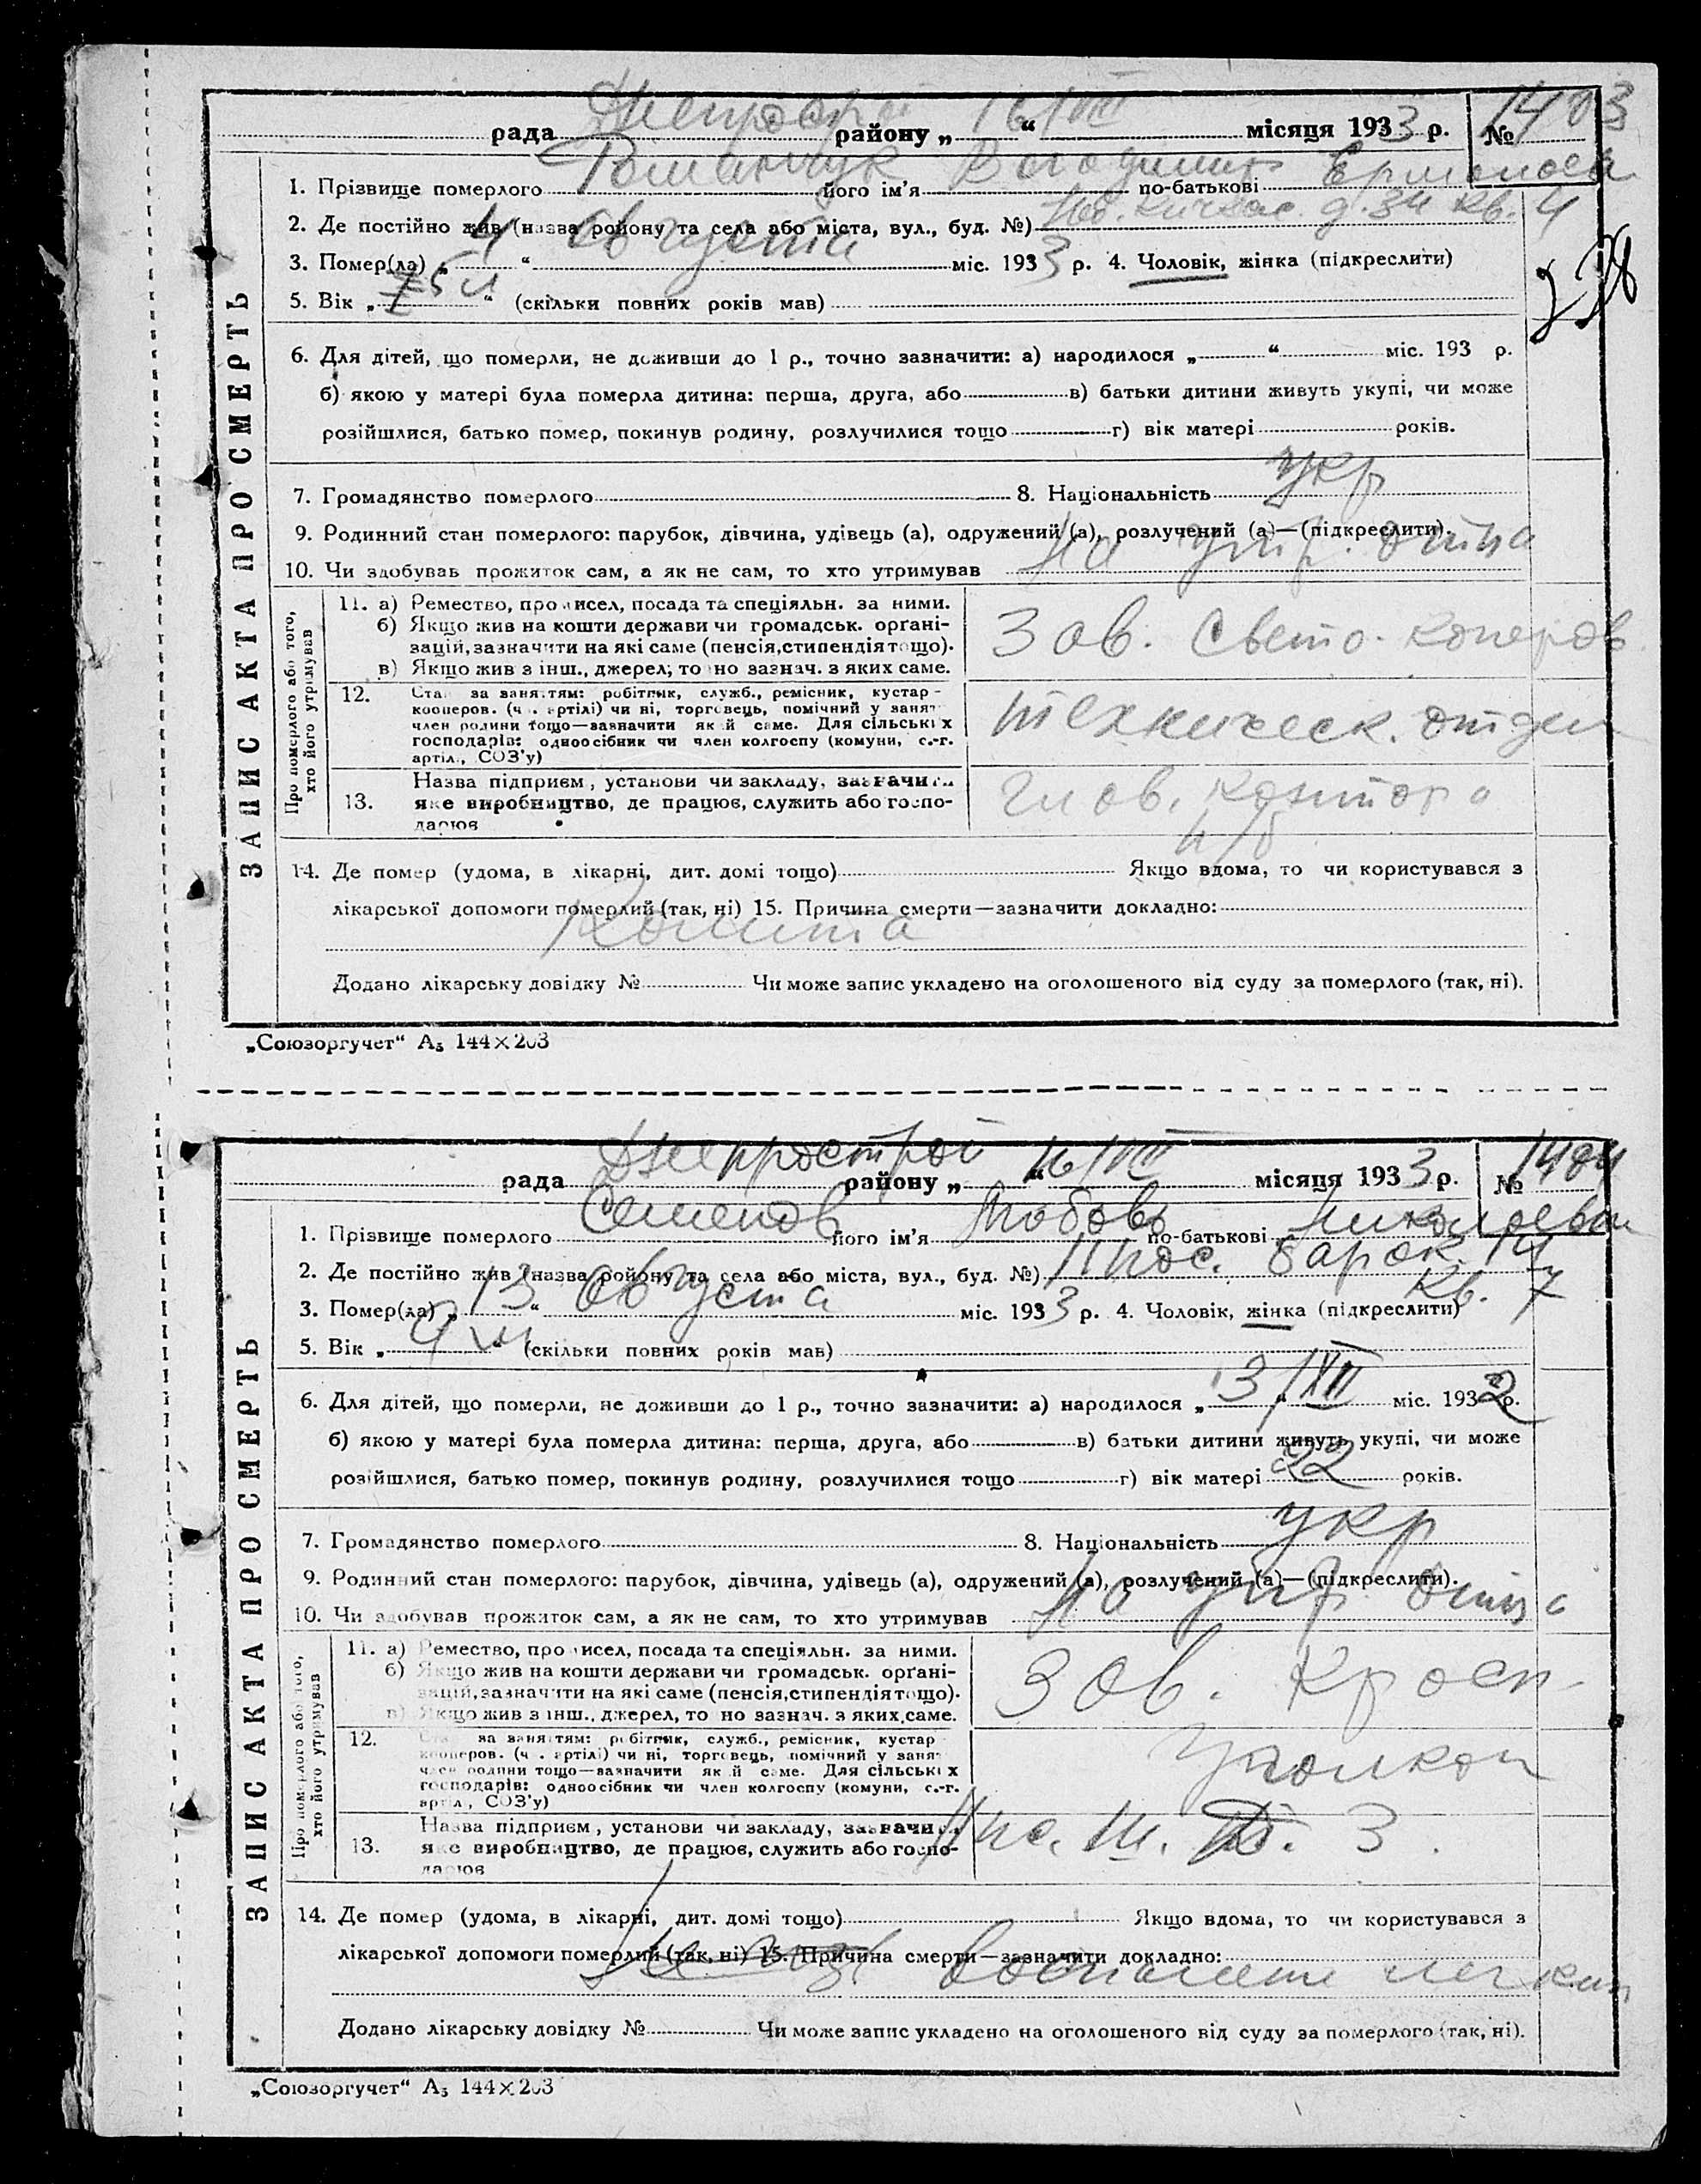 Днепрострой 16/VIII
рада району „ “ місяця 1933 р. № 1403
1. Прізвище померлого його ім’я Володимир по-батькові
2. Де постійно жив (назва району та села або міста, вул., буд. №) Кичкас. д. 34 кв. 4
3. Помер(ла) „ 4 “ августа міс. 1933 р. 4. Чоловік, жінка (підкреслити)
5. Вік „ “ (скільки повних років мав)
228
6. Для дітей, що померли, не доживши до 1 р., точно зазначити: а) народилося „ “ міс. 193 р.
б) якою у матері була померла дитина: перша, друга, або в) батьки дитини живуть укупі, чи може
розійшлися, батько помер, покинув родину, розлучилися тощо г) вік матері років.
7. Громадянство померлого 8. Національність укр
9. Родинний стан померлого: парубок, дівчина, удівець (а), одружений (а), розлучений (а)—(підкреслити).
10. Чи здобував прожиток сам, а як не сам, то хто утримував На утр. отца
ЗАПИС АКТА ПРО СМЕРТЬ
Про померлого або того, хто його утримував
11. а) Ремество, промисел, посада та спеціяльн. за ними.
б) Якщо жив на кошти держави чи громадськ. орґані-
зацій, зазначити на які саме (пенсія, стипендія тощо).
в) Якщо жив з інш., джерел, точно зазнач. з яких саме.
Зав. Свето-копиров.
12. Стан за заняттям: робітник, служб., ремісник, кустар -
кооперов. (чл. артілі) чи ні, торговець, помічний у занят.
член родини тощо—зазначити який саме. Для сільських
господарів: одноосібник чи член колгоспу (комуни, с.-г.
артіл., СОЗ’у)
техническ. отдел
13. Назва підприєм., установи чи закладу, зазначити
яке виробництво, де працює, служить або госпо-
дарює
Глав. контора
14. Де помер (удома, в лікарні, дит. домі тощо) Якщо вдома, то чи користувався з
лікарської допомоги померлий (так, ні) 15. Причина смерти—зазначити докладно:
Колита
Додано лікарську довідку № Чи може запис укладено на оголошеного від суду за померлого (так, ні).
„Союзоргучет“ А₅ 144×203
Днепрострой 16/VIII
рада району „ “ місяця 1933 р. № 1404
1. Прізвище померлого Семенов його ім’я Любовь по-батькові Николаевн
2. Де постійно жив (назва району та села або міста, вул., буд. №) II пос. барак 14
кв. 7
3. Помер(ла) „ 13 “ августа міс. 1933 р. 4. Чоловік, жінка (підкреслити)
5. Вік „ “ (скільки повних років мав)
6. Для дітей, що померли, не доживши до 1 р., точно зазначити: а) народилося „ 3/XII “ міс. 1932 р.
б) якою у матері була померла дитина: перша, друга, або в) батьки дитини живуть укупі, чи може
розійшлися, батько помер, покинув родину, розлучилися тощо г) вік матері 22 років.
7. Громадянство померлого 8. Національність укр
9. Родинний стан померлого: парубок, дівчина, удівець (а), одружений (а), розлучений (а)—(підкреслити).
10. Чи здобував прожиток сам, а як не сам, то хто утримував На утр. отца
ЗАПИС АКТА ПРО СМЕРТЬ
Про померлого або того, хто його утримував
11. а) Ремество, промисел, посада та спеціяльн. за ними.
б) Якщо жив на кошти держави чи громадськ. орґані-
зацій, зазначити на які саме (пенсія, стипендія тощо).
в) Якщо жив з інш., джерел, точно зазнач. з яких саме.
Зав. Красн.
12. Стан за заняттям: робітник, служб., ремісник, кустар
кооперов. (чл. артілі) чи ні, торговець, помічний у занят.
член родини тощо—зазначити який саме. Для сільських
господарів: одноосібник чи член колгоспу (комуни, с.-г.
артіл., СОЗ’у)
Уголком
13. Назва підприєм., установи чи закладу, зазначити
яке виробництво, де працює, служить або госпо-
дарює
14. Де помер (удома, в лікарні, дит. домі тощо) Якщо вдома, то чи користувався з
лікарської допомоги померлий (так, ні) 15. Причина смерти—зазначити докладно:
воспалени легких
Додано лікарську довідку № Чи може запис укладено на оголошеного від суду за померлого (так, ні).
„Союзоргучет“ А₅ 144×203